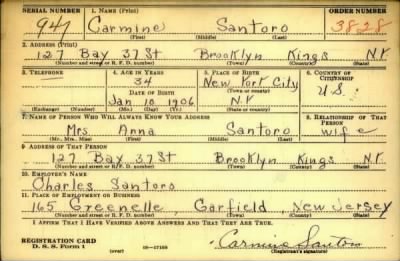 SERIAL NUMBER 1. NAME (Print) ORDER NUMBER
941 Carmine Santoro 3828
(First) (Middle) (Last)
2. ADDRESS (Print)
127 Bay 37 St Brooklyn Kings N.Y
(Number and street or R. F. D. number) (Town) (County) (State)
3. TELEPHONE 4. AGE IN YEARS 5. PLACE OF BIRTH 6. COUNTRY OF CITIZENSHIP
34 New York City
DATE OF BIRTH (Town or county) U.S.
Jan 10 1906 N.Y
(Exchange) (Number) (Mo.) (Day) (Yr.) (State or country)
7. NAME OF PERSON WHO WILL ALWAYS KNOW YOUR ADDRESS 8. RELATIONSHIP OF THAT PERSON
Mrs. Anna Santoro wife
(Mr., Mrs., Miss) (First) (Middle) (Last)
9. ADDRESS OF THAT PERSON
127 Bay 37 St Brooklyn Kings N.Y
(Number and street or R. F. D. number) (Town) (County) (State)
10. EMPLOYER'S NAME
Charles Santoro
11. PLACE OF EMPLOYMENT OR BUSINESS
165 Greenelle, Garfield, New Jersey
(Number and street or R. F. D. number) (Town) (County) (State)
I AFFIRM THAT I HAVE VERIFIED ABOVE ANSWERS AND THAT THEY ARE TRUE.
REGISTRATION CARD
D. S. S. Form 1 (over) 16—17105 Carmine Santoro
(Registrant's signature)